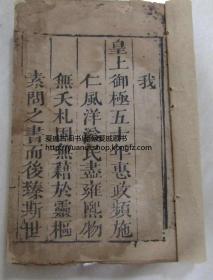 我
皇上御極五十年惠政頻施
仁風洋溢民盡雍熙物
無夭札固無藉於靈樞
素問之書而後臻斯世